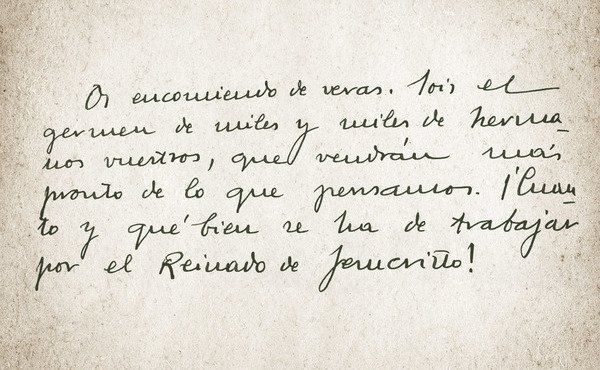 Os encomiendo de veras. Sois el
germen de miles y miles de herma-
nos vuestros, que vendrán más
pronto de lo que pensamos. ¡Cuan-
to y qué bien se ha de trabajar
por el Reinado de Jesucristo!